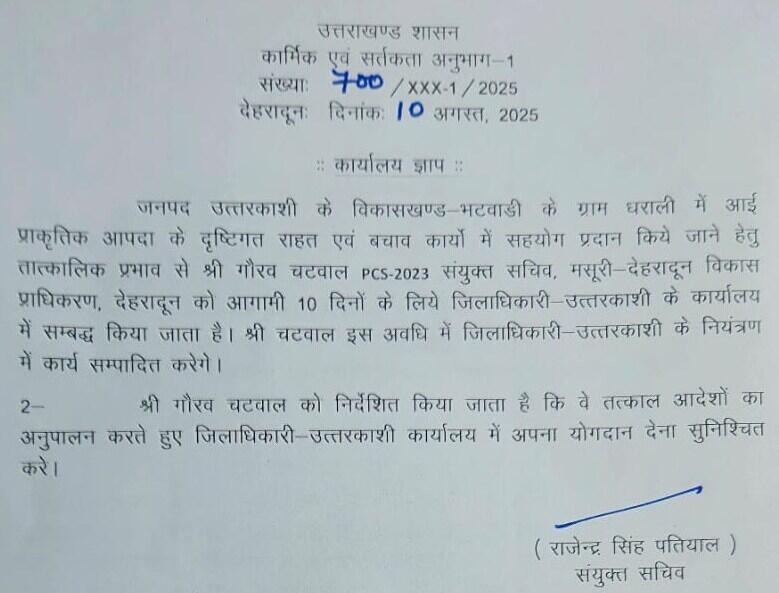 उत्तराखण्ड शासन
कार्मिक एवं सर्तकता अनुभाग-1
संख्याः 700 /XXX-1 / 2025
देहरादूनः दिनांकः 10 अगस्त, 2025
:: कार्यालय ज्ञाप ::
जनपद उत्तरकाशी के विकासखण्ड-भटवाडी के ग्राम धराली में आई
प्राकृतिक आपदा के दृष्टिगत राहत एवं बचाव कार्यो में सहयोग प्रदान किये जाने हेतु
तात्कालिक प्रभाव से श्री गौरव चटवाल PCS-2023 संयुक्त सचिव, मसूरी-देहरादून विकास
प्राधिकरण, देहरादून को आगामी 10 दिनों के लिये जिलाधिकारी-उत्तरकाशी के कार्यालय
में सम्बद्ध किया जाता है। श्री चटवाल इस अवधि में जिलाधिकारी-उत्तरकाशी के नियंत्रण
में कार्य सम्पादित करेगे।
2- श्री गौरव चटवाल को निर्देशित किया जाता है कि वे तत्काल आदेशों का
अनुपालन करते हुए जिलाधिकारी-उत्तरकाशी कार्यालय में अपना योगदान देना सुनिश्चित
करे।
( राजेन्द्र सिंह पतियाल )
संयुक्त सचिव